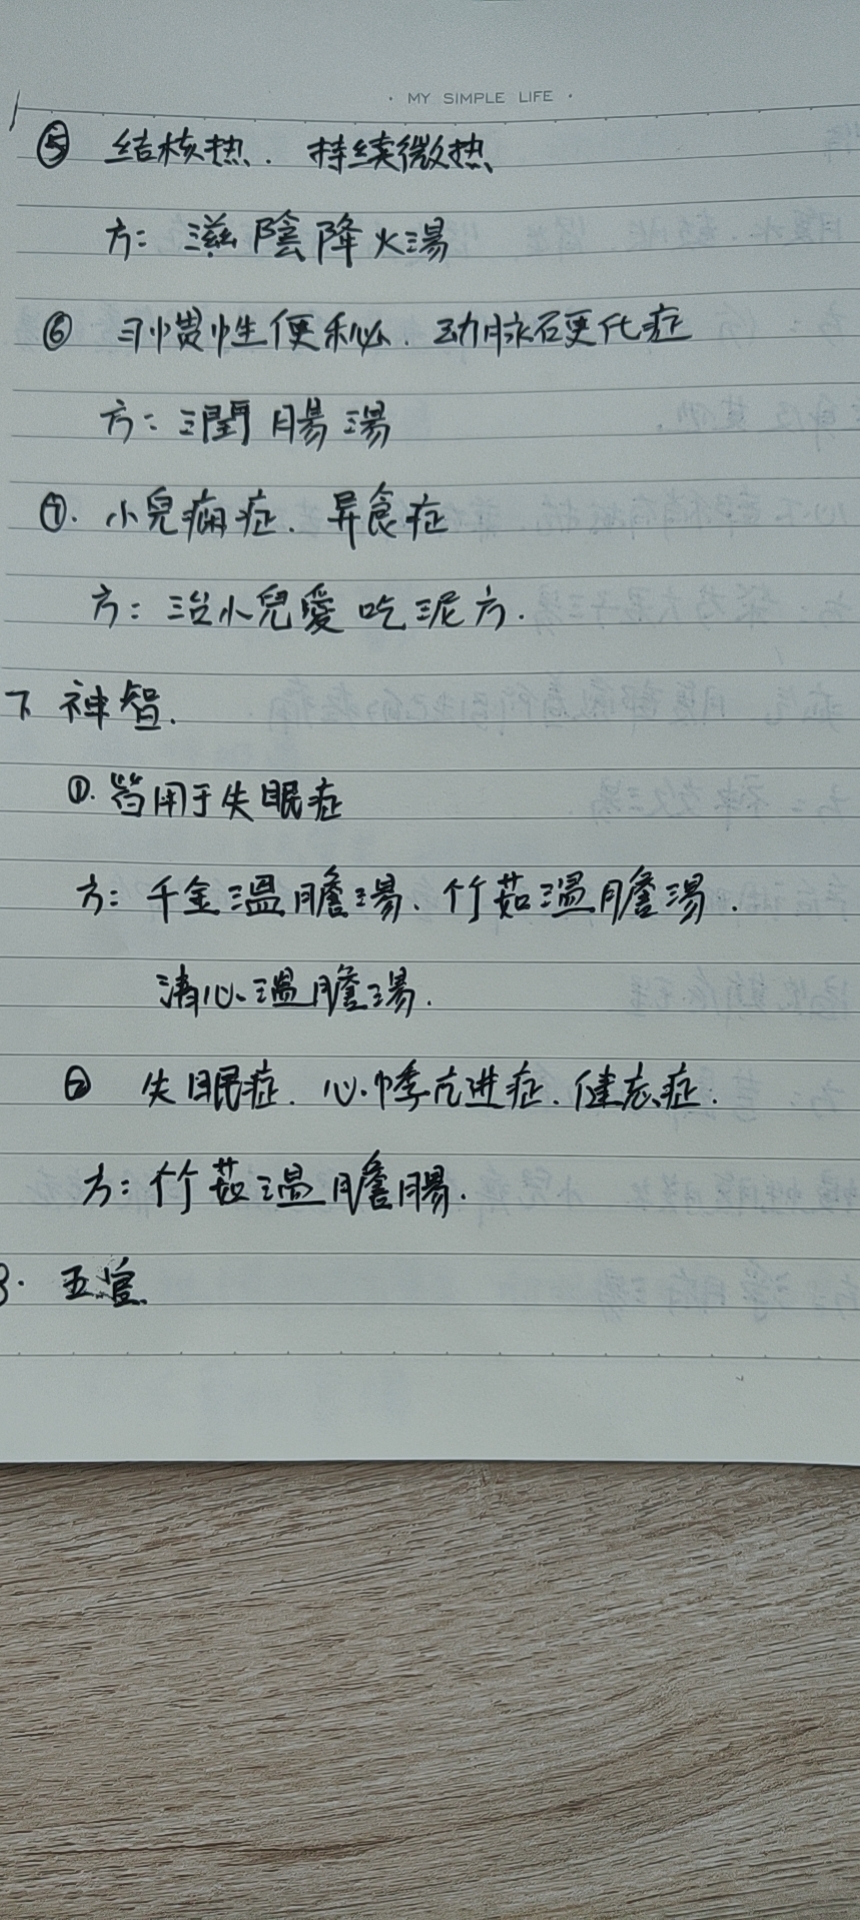 · MY SIMPLE LIFE ·
⑤ 结核热. 持续微热、
方: 滋陰降火湯
⑥ 习惯性便秘. 动脉硬化症
方: 潤腸湯
⑦. 小兒痫症. 异食症
方: 治小兒愛吃泥方.
下 神智.
①. 皆用于失眠症
方: 千金溫膽湯. 竹茹溫膽湯.
清心溫膽湯.
② 失眠症. 心悸亢进症. 健忘症.
方: 竹茹溫膽腸.
3. 五官.